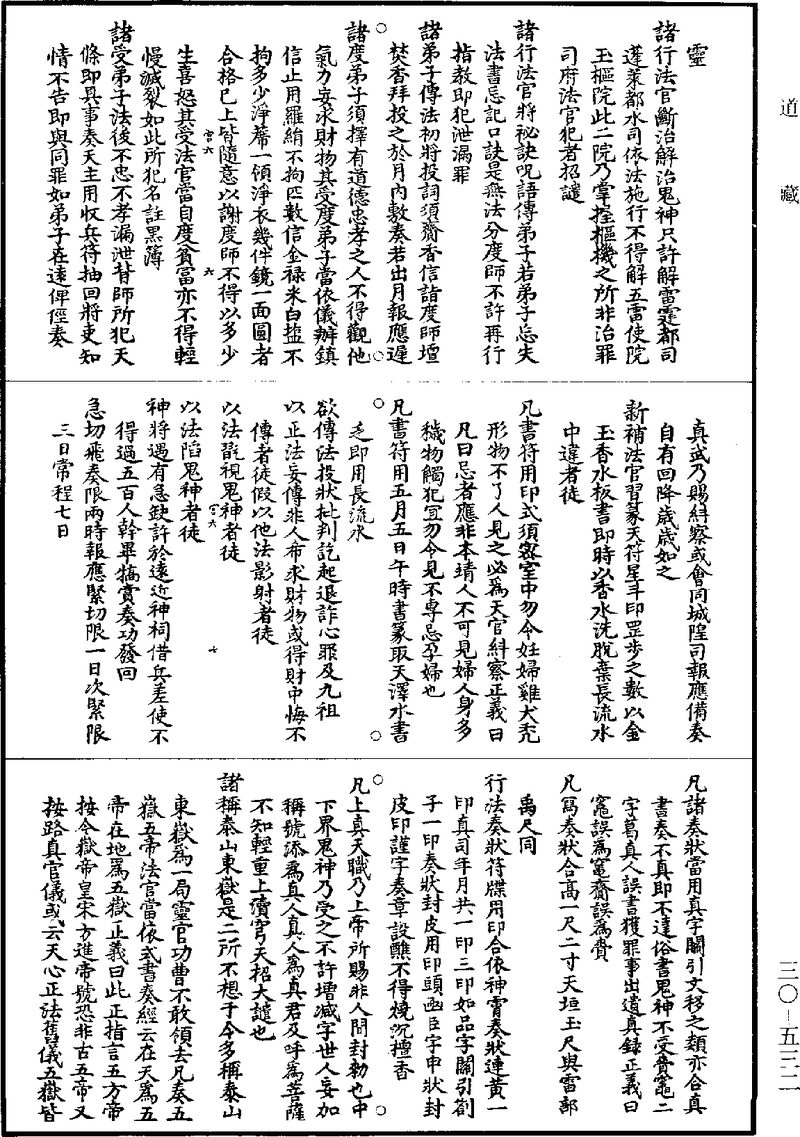 道藏
靈
諸行法官斷治解治鬼神只許解雷霆都司
蓬萊都水司依法施行不得解五雷使院
玉樞院此二院乃掌握樞機之所非治罪
司府法官犯者招譴
諸行法官將祕訣呪語傳弟子若弟子忘失
法書忘記口訣是無法分度師不許再行
指教即犯泄漏罪
諸弟子傳法初將投詞須齋香信詣度師壇
焚香拜投之於月內敷奏若出月報應遲
諸度弟子須擇有道德忠孝之人不得觀他
氣力妄求財物其受度弟子當依儀辦鎮
信止用羅絹不拘匹數信金祿米白盐不
拘多少淨蓆一領淨衣幾件鏡一面圓者
合格已上皆隨意以謝度師不得以多少
宫六
六
生喜怒其受法官當自度貧富亦不得輕
慢滅裂如此所犯名註黑薄
諸受弟子法後不忠不孝漏泄背師所犯天
條即具事奏天主用收兵符抽回將吏知
情不告即與同罪如弟子在遠俾徑奏
真武乃賜糾察或會同城隍司報應備奏
自有回降歲歲如之
新補法官習篆天符星斗印罡步之數以金
玉香水板書即時以香水洗脫棄長流水
中違者徒
凡書符用印式須密室中勿令妊婦雞犬禿
形物不了人見之必爲天官糾察正義曰
凡曰忌者應非本靖人不可見婦人身多
穢物觸犯宜勿令見不專忌孕婦也
凡書符用五月五日午時書篆取天澤水書
乏即用長流水
欲傳法投狀批判訖起退詐心罪及九祖
以正法妄傳非人希求財物或得財中悔不
傳者徒假以他法影射者徒
以法翫視鬼神者徒
宫六
七
以法陷鬼神者徒
神將遇有急缺許於遠近神祠借兵差使不
得過五百人幹畢犒賞奏功發回
急切飛奏限兩時報應緊切限一日次緊限
三日常程七日
凡諸奏狀當用真字關引文移之類亦合真
書奏不真即不達俗書鬼神不受費竈二
字葛真人誤書獲罪事出遺真錄正義曰
竈誤爲竃齋誤爲賫
凡寫奏狀合高一尺二寸天垣玉尺與雷部
禹尺同
行法奏狀符牒用印合依神霄奏狀連黃一
印真司年月共一印三印如品字關引劄
子一印奏狀封皮用印頭函臣字申狀封
皮印謹字奏章設醮不得燒沉檀香
凡上真天職乃上帝所賜非人間封勅也中
下界鬼神乃受之不許增减字世人妄加
稱號添爲真人真人爲真君及呼爲菩薩
不知輕重上瀆穹天招大譴也
諸稱泰山東嶽是二所不想于今多稱泰山
東嶽爲一局靈官功曹不敢領去凡奏五
嶽五帝法官當依式書奏經云在天爲五
帝在地爲五嶽正義曰此正指言五方帝
按今嶽帝皇宋方進帝號恐非古五帝又
按路真官儀或云天心正法舊儀五嶽皆
三〇-五三二